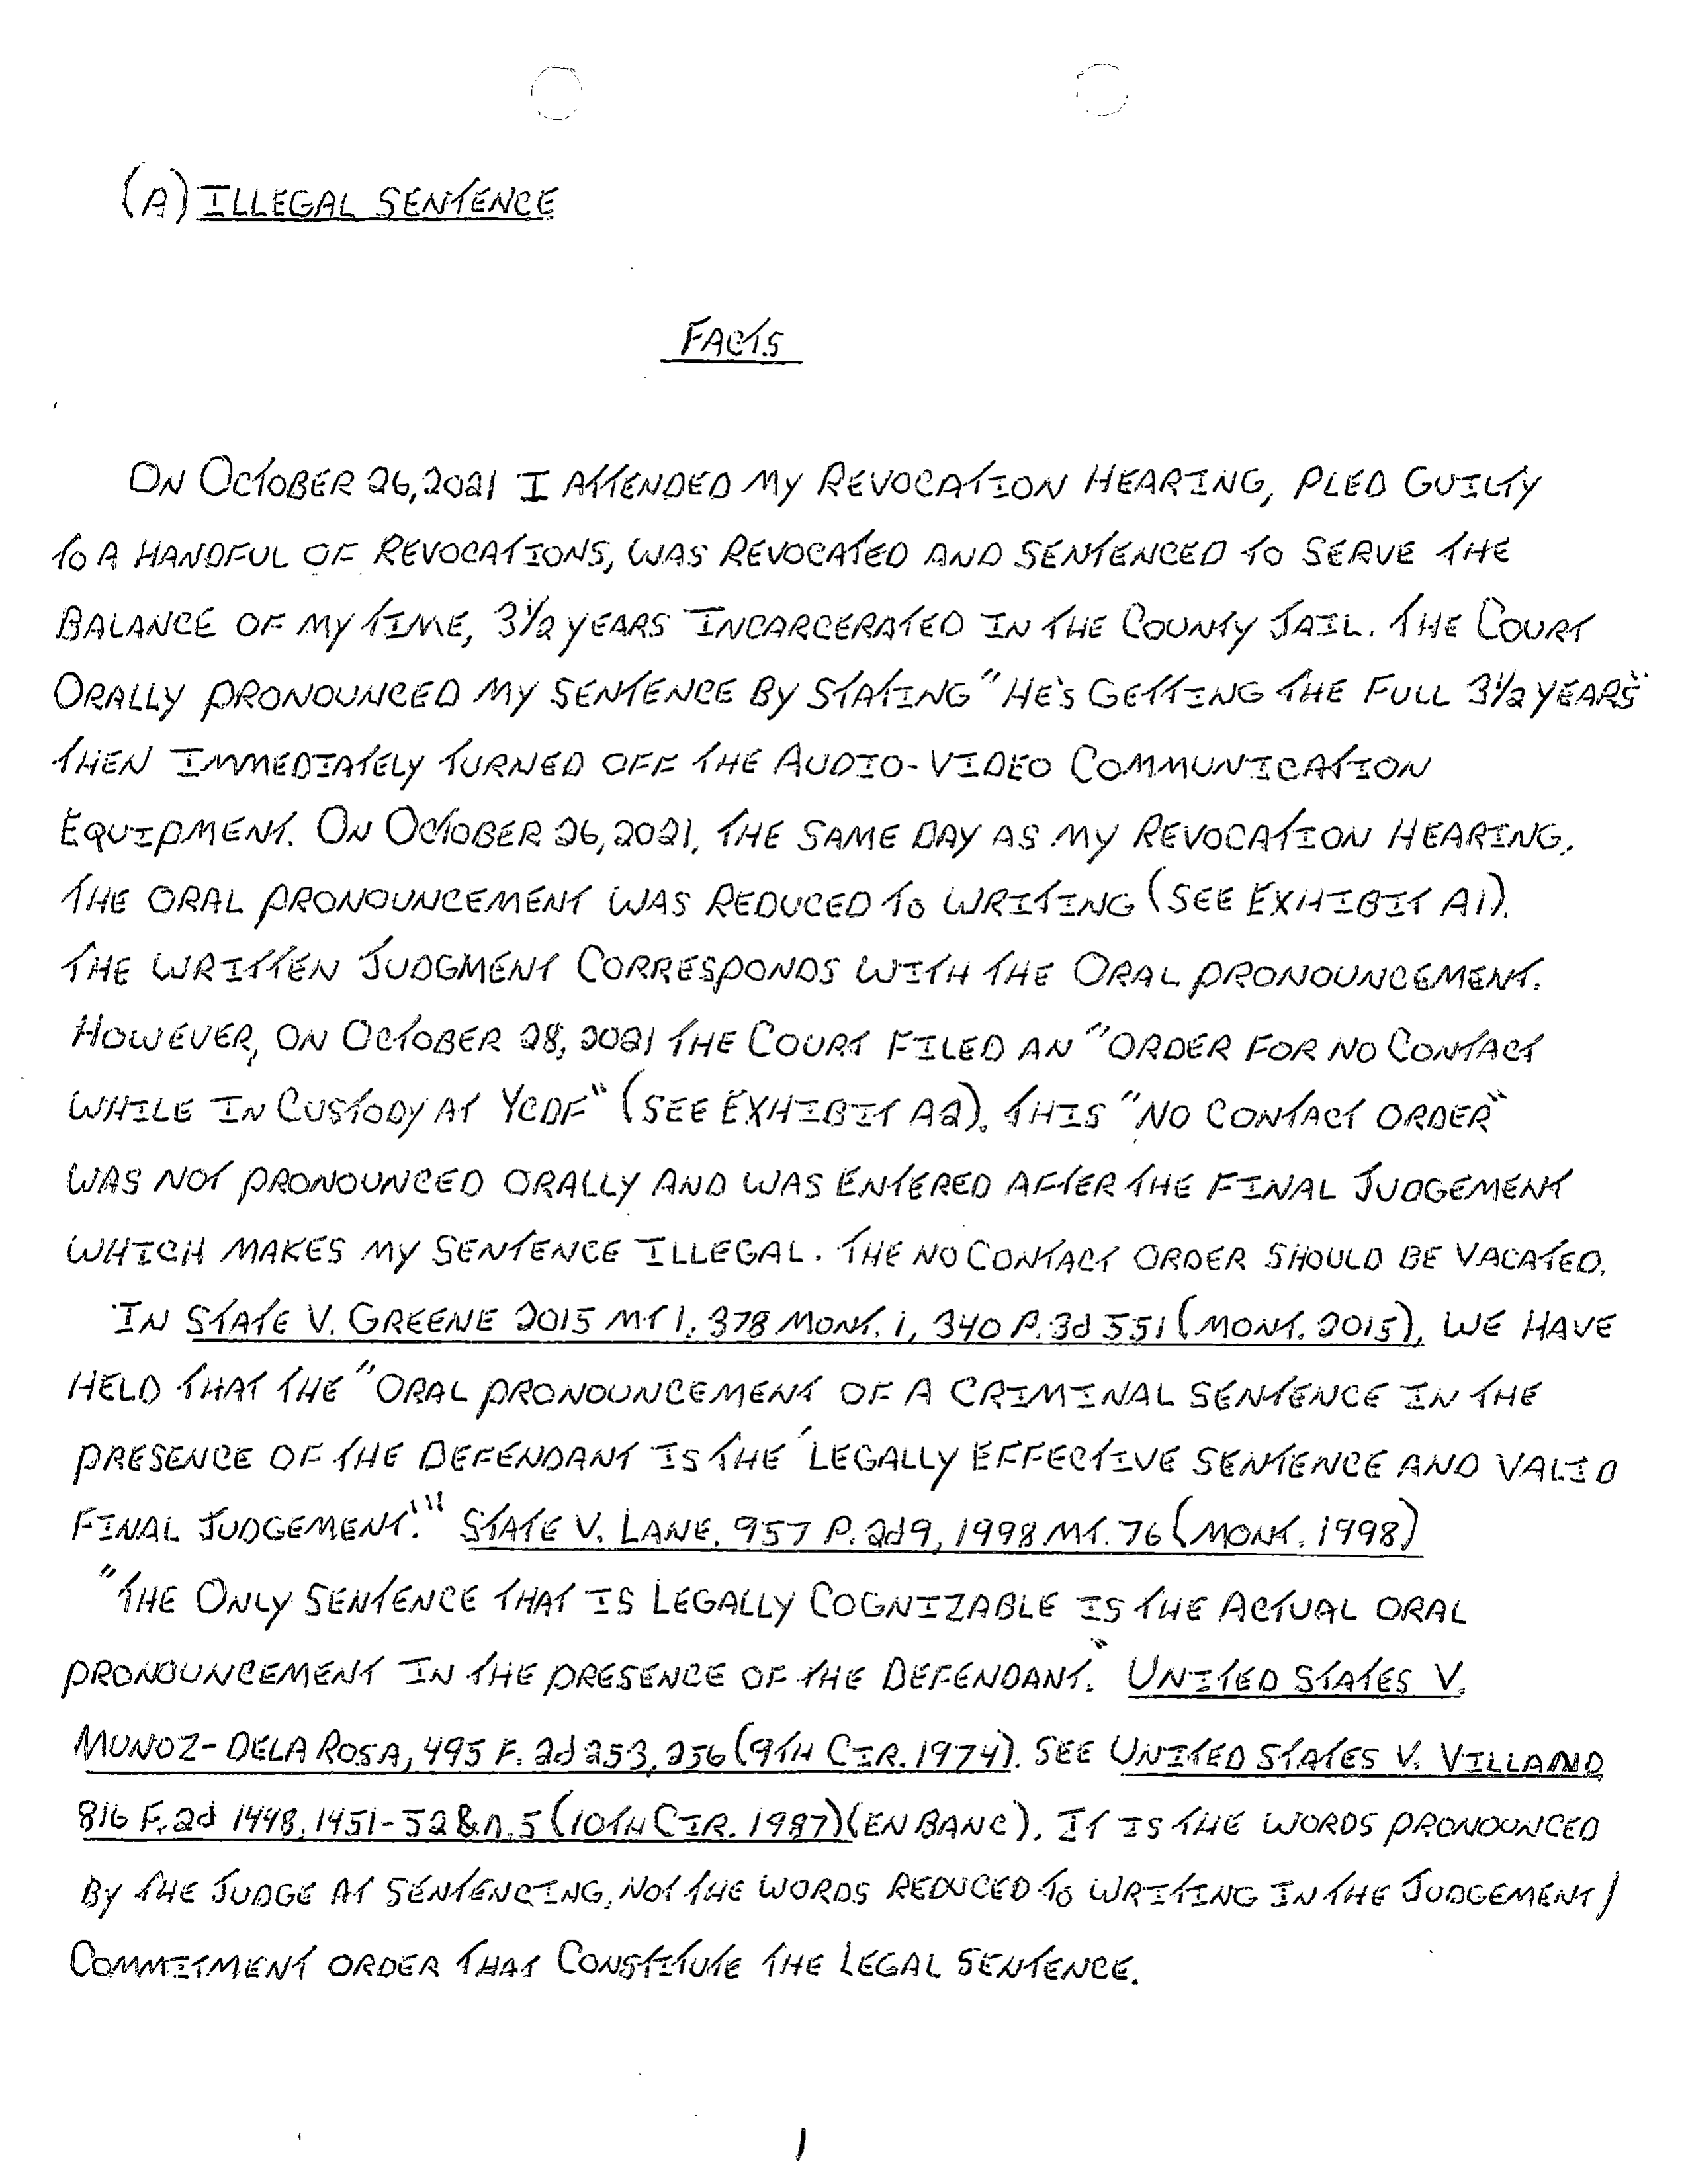 (A) ILLEGAL SENTENCE
FACTS
ON OCTOBER 26, 2021 I ATTENDED MY REVOCATION HEARING, PLED GUILTY
TO A HANDFUL OF REVOCATIONS, WAS REVOCATED AND SENTENCED TO SERVE THE
BALANCE OF MY TIME, 3½ YEARS INCARCERATED IN THE COUNTY JAIL. THE COURT
ORALLY PRONOUNCED MY SENTENCE BY STATING "HE'S GETTING THE FULL 3½ YEARS"
THEN IMMEDIATELY TURNED OFF THE AUDIO-VIDEO COMMUNICATION
EQUIPMENT. ON OCTOBER 26, 2021, THE SAME DAY AS MY REVOCATION HEARING,
THE ORAL PRONOUNCEMENT WAS REDUCED TO WRITING (SEE EXHIBIT A1).
THE WRITTEN JUDGMENT CORRESPONDS WITH THE ORAL PRONOUNCEMENT.
HOWEVER, ON OCTOBER 28, 2021 THE COURT FILED AN "ORDER FOR NO CONTACT
WHILE IN CUSTODY AT YCDF" (SEE EXHIBIT A2). THIS "NO CONTACT ORDER"
WAS NOT PRONOUNCED ORALLY AND WAS ENTERED AFTER THE FINAL JUDGEMENT
WHICH MAKES MY SENTENCE ILLEGAL. THE NO CONTACT ORDER SHOULD BE VACATED.
IN STATE V. GREENE 2015 MT 1, 378 MONT. 1, 340 P.3d 551 (MONT. 2015), WE HAVE
HELD THAT THE "ORAL PRONOUNCEMENT OF A CRIMINAL SENTENCE IN THE
PRESENCE OF THE DEFENDANT IS THE 'LEGALLY EFFECTIVE SENTENCE AND VALID
FINAL JUDGEMENT.'" STATE V. LANE, 957 P.2d 9, 1998 MT. 76 (MONT. 1998)
"THE ONLY SENTENCE THAT IS LEGALLY COGNIZABLE IS THE ACTUAL ORAL
PRONOUNCEMENT IN THE PRESENCE OF THE DEFENDANT." UNITED STATES V.
MUNOZ-DELA ROSA, 495 F.2d 253, 256 (9TH CIR. 1974). SEE UNITED STATES V. VILLANO,
816 F.2d 1448, 1451-52 & n.5 (10TH CIR. 1987) (EN BANC). IT IS THE WORDS PRONOUNCED
BY THE JUDGE AT SENTENCING, NOT THE WORDS REDUCED TO WRITING IN THE JUDGEMENT/
COMMITMENT ORDER THAT CONSTITUTE THE LEGAL SENTENCE.
1